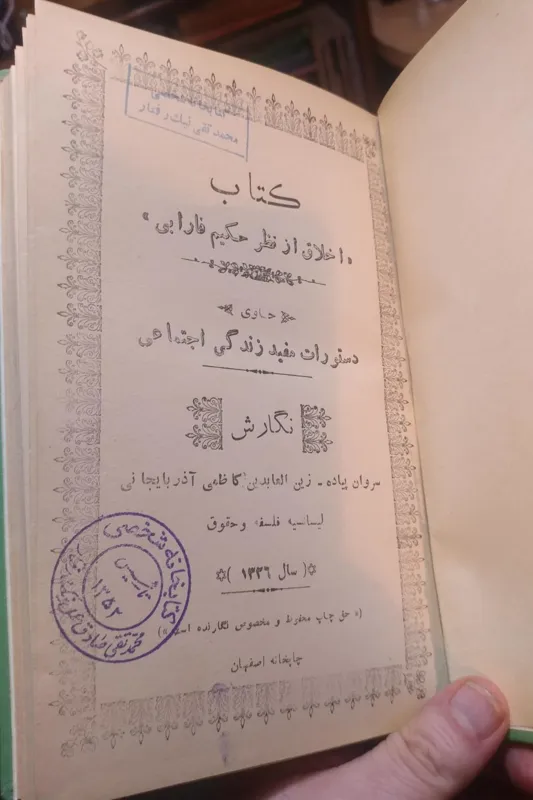 کتابخانه شخصی
محمد تقی نیک رفتار
کتاب
« اخلاق از نظر حکیم فارابی »
حاوی
دستورات مفید زندگی اجتماعی
نگارش
سروان پیاده - زین العابدین کاظمی آذربایجانی
لیسانسیه فلسفه و حقوق
( سال ۱۳۲۶ )
(« حق چاپ محفوظ و مخصوص نگارنده است »)
چاپخانه اصفهان
کتابخانه شخصی
تاسیس
۱۳۵۲
محمد تقی صادق